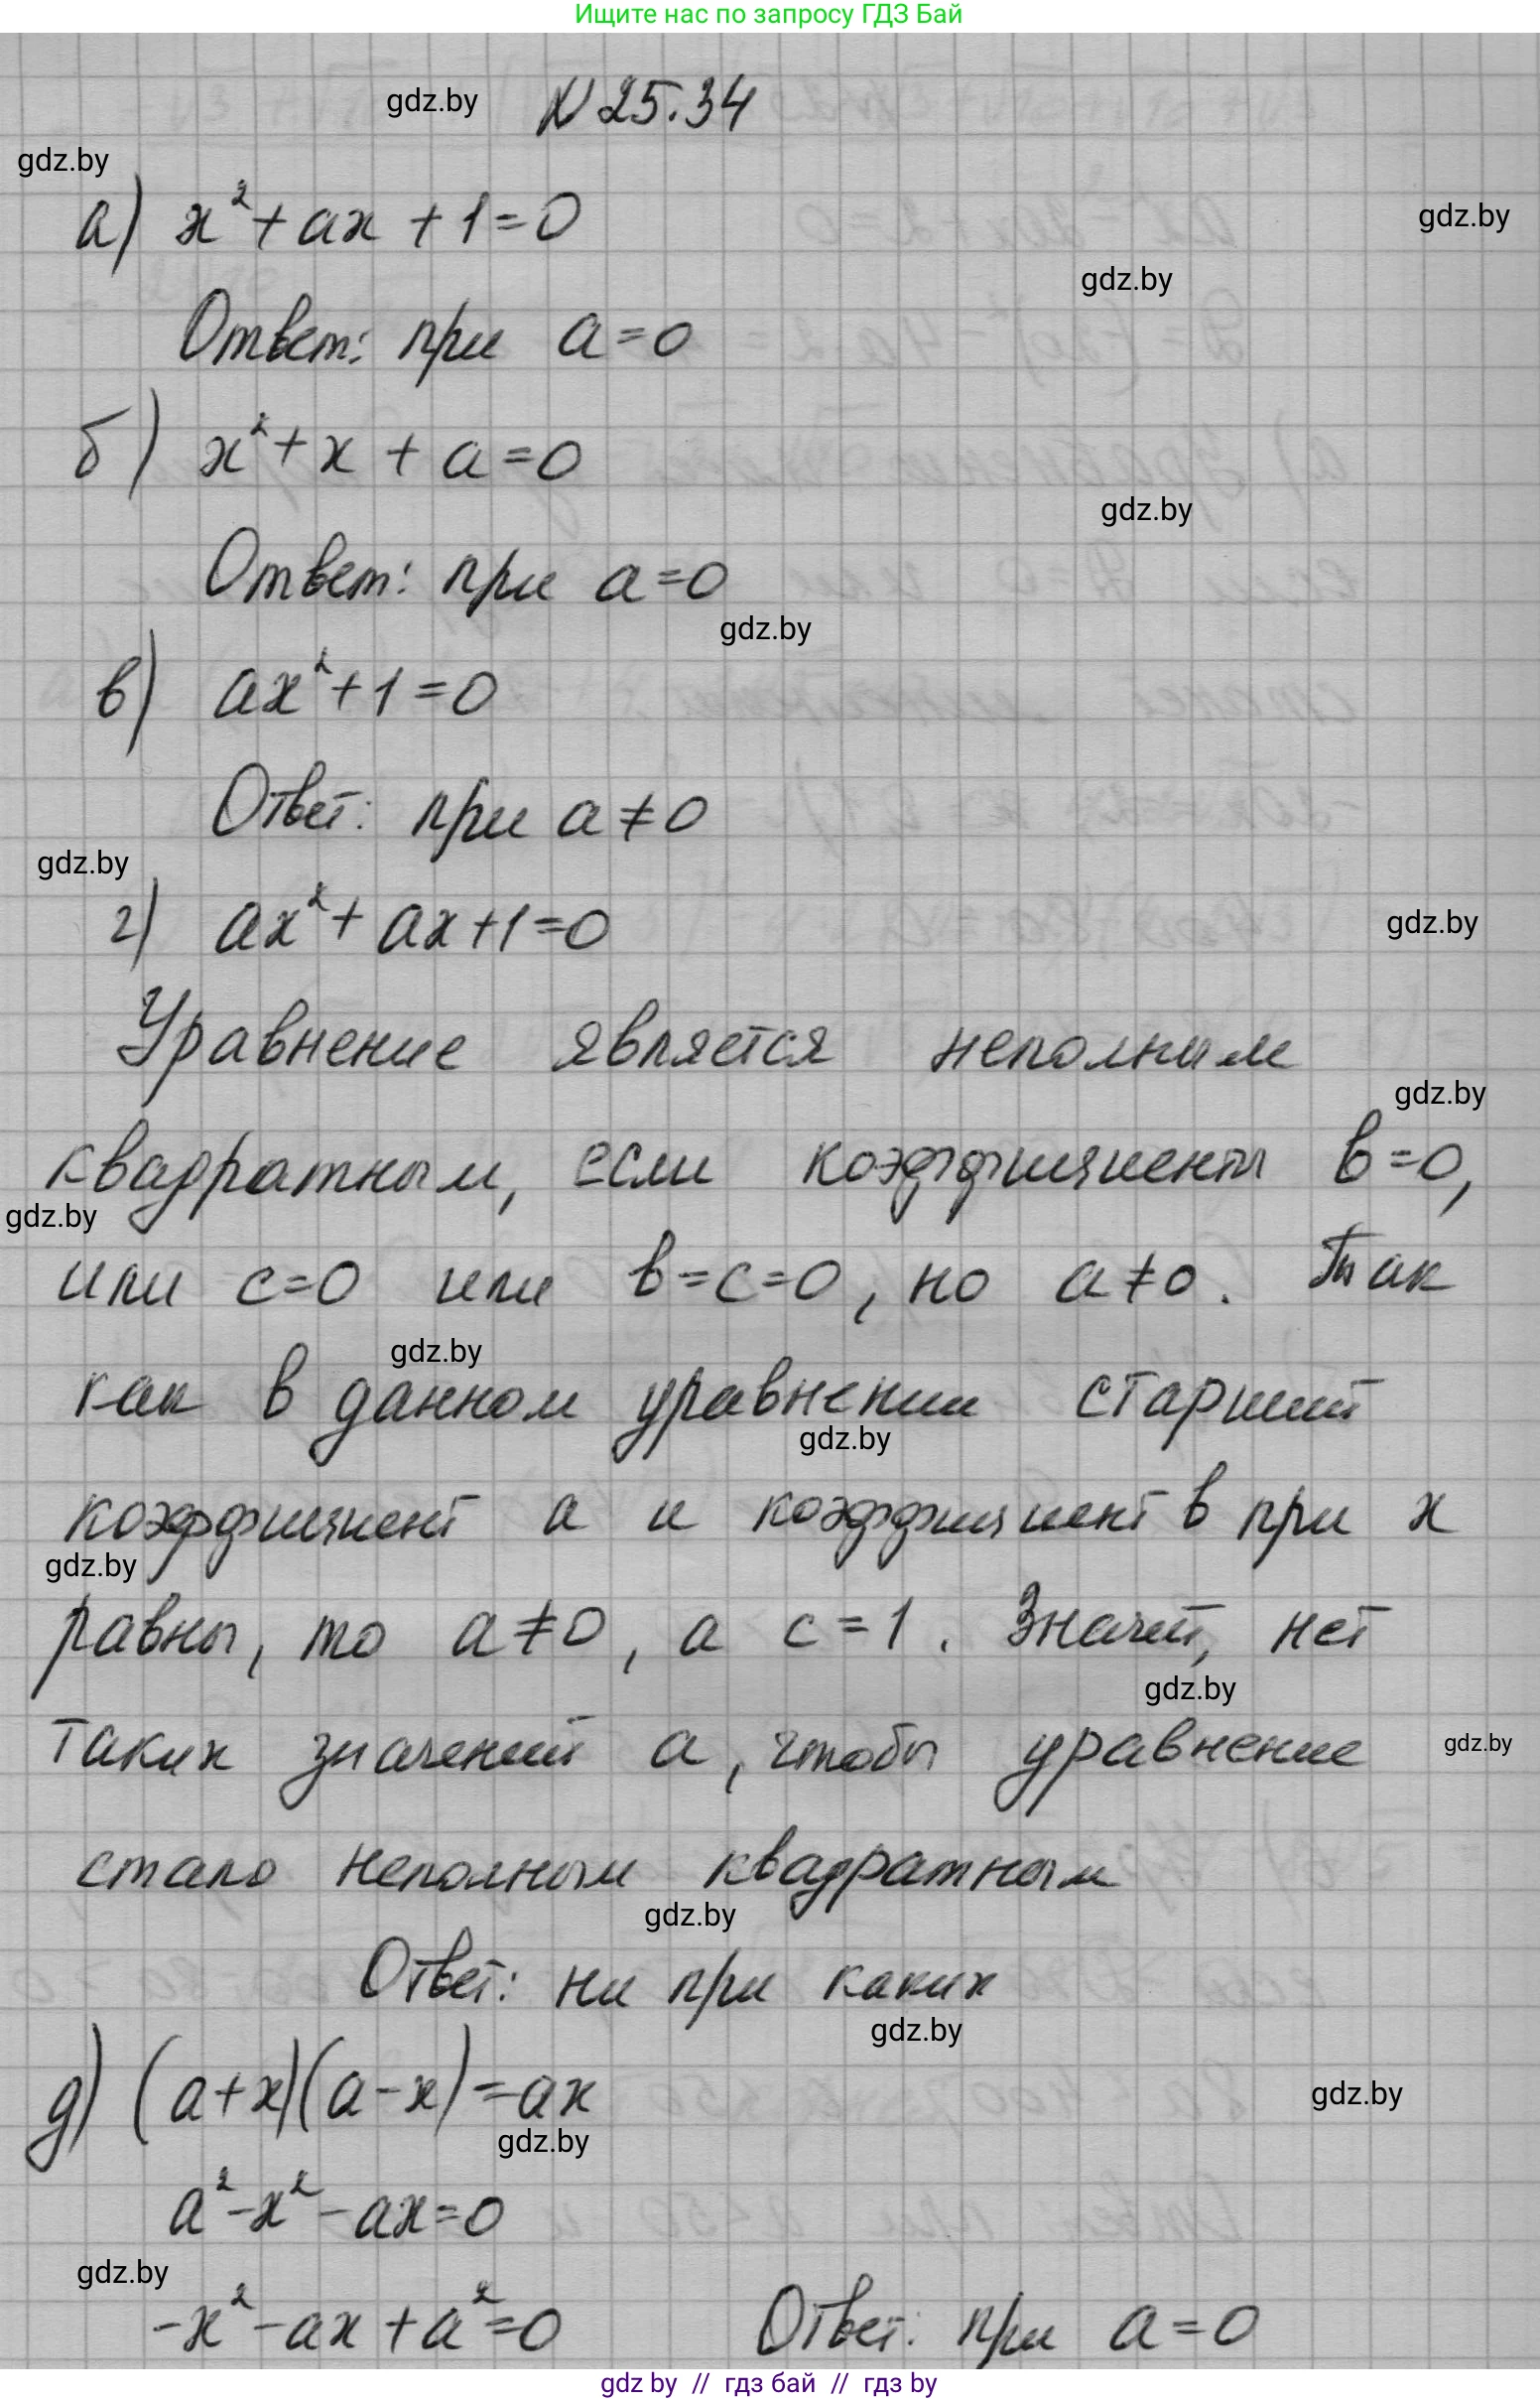 Ищите нас по запросу ГДЗ Бай
gdz.by
N 25.34
gdz.by
а) x²+ax+1=0
gdz.by
gdz.by
Ответ: при a=0
б) x²+x+a=0
gdz.by
Ответ: при a=0
gdz.by
в) ax²+1=0
Ответ: при a≠0
gdz.by
г) ax²+ax+1=0
gdz.by
Уравнение является неполным
gdz.by
квадратным, если коэффициенты b=0,
gdz.by
или c=0 или b=c=0, но a≠0. Так
gdz.by
как в данном уравнении старший
gdz.by
коэффициент a и коэффициент b при x
gdz.by
равны, то a≠0, а c=1. Значит, нет
gdz.by
таких значений a, чтобы уравнение
gdz.by
стало неполным квадратным
gdz.by
Ответ: ни при каких
gdz.by
д) (a+x)(a-x)=ax
gdz.by
gdz.by
a²-x²-ax=0
gdz.by
-x²-ax+a²=0 Ответ: при a=0
gdz by // гдз бай // гдз by